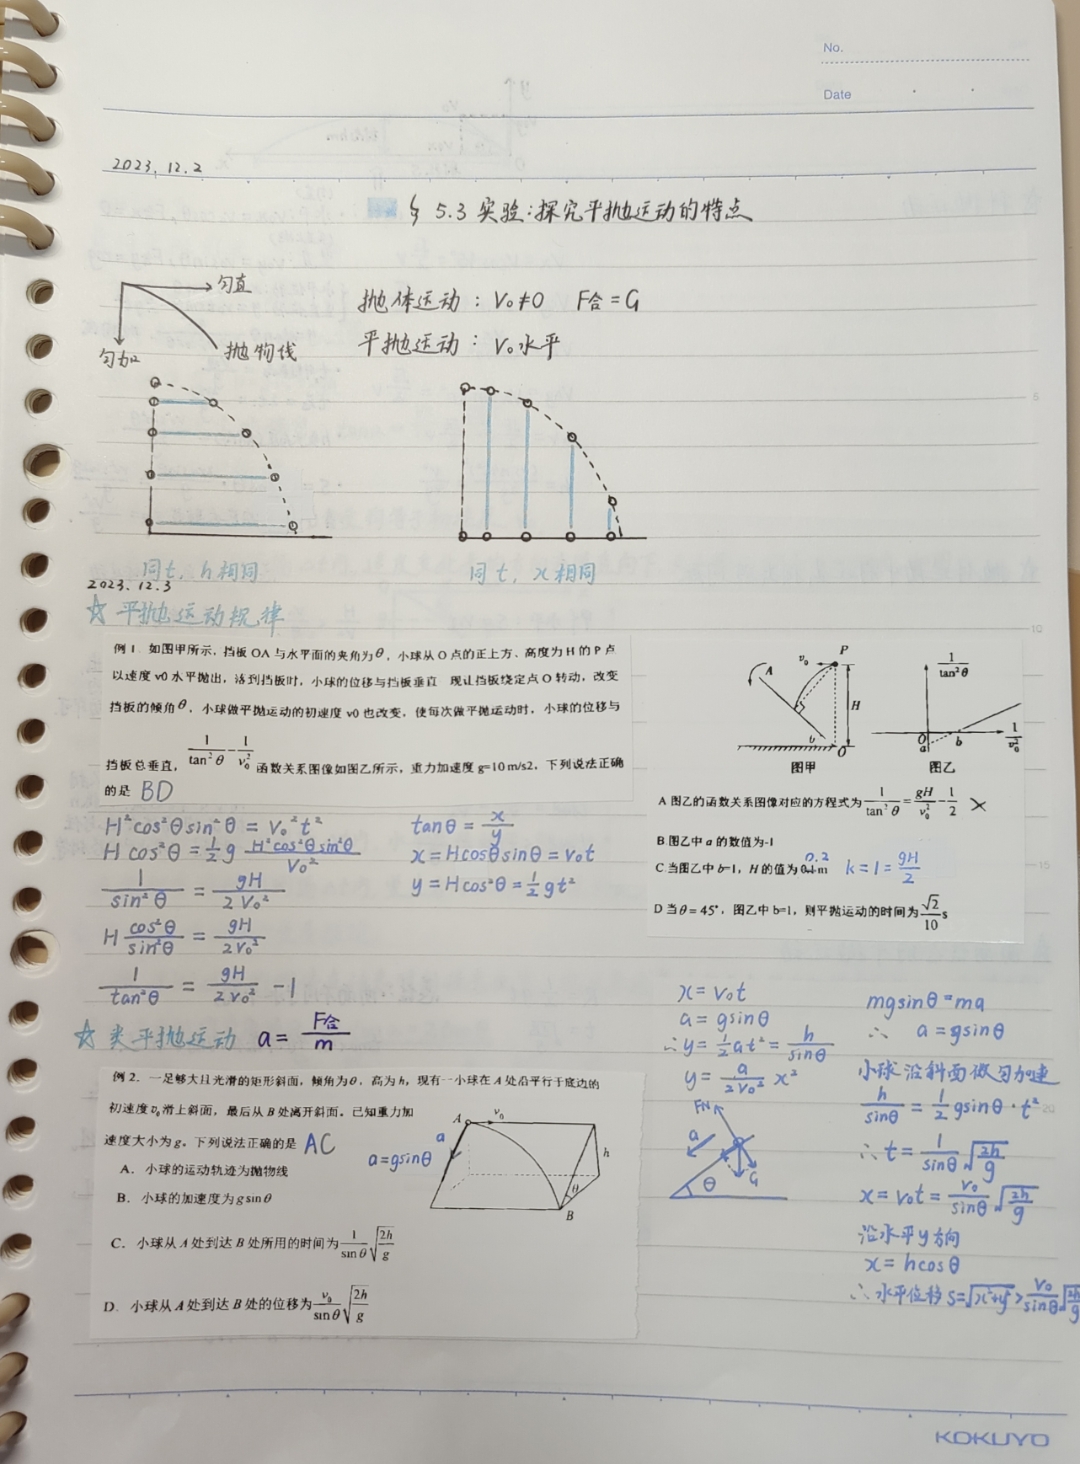 No.
Date
2023.12.2
§ 5.3 实验:探究平抛运动的特点
匀直
匀加
抛物线
抛体运动: V₀≠0 F合=G
平抛运动: V₀水平
同t, h相同
同t, x相同
2023.12.3
☆ 平抛运动规律
例1. 如图甲所示,挡板OA与水平面的夹角为θ,小球从O点的正上方、高度为H的P点
以速度v0水平抛出,落到挡板时,小球的位移与挡板垂直 现让挡板绕定点O转动,改变
挡板的倾角θ,小球做平抛运动的初速度v0也改变,使每次做平抛运动时,小球的位移与
挡板总垂直, 1/tan²θ - 1/v₀² 函数关系图像如图乙所示,重力加速度g=10 m/s2,下列说法正确
的是 BD
A P v₀ H θ O
图甲
1/tan²θ
O a b 1/v₀²
图乙
A 图乙的函数关系图像对应的方程式为 1/tan²θ = gH/v₀² - 1/2 ×
B.图乙中a的数值为-1
C.当图乙中b=1, H的值为0.1m 0.2 k=1=gH/2
D 当θ=45°, 图乙中b=1, 则平抛运动的时间为 √2/10 s
H²cos²θsin²θ = V₀²t²
H cos²θ = ½ g H²cos²θsin²θ/V₀²
1/sin²θ = gH/2V₀²
H cos²θ/sin²θ = gH/2V₀²
1/tan²θ = gH/2V₀² -1
tanθ = x/y
x=Hcosθsinθ=V₀t
y=Hcos²θ=½gt²
☆ 类平抛运动 a= F合/m
例2. 一足够大且光滑的矩形斜面,倾角为θ,高为h,现有一小球在A处沿平行于底边的
初速度v₀滑上斜面,最后从B处离开斜面。已知重力加
速度大小为g。下列说法正确的是 AC
A. 小球的运动轨迹为抛物线
B. 小球的加速度为g sinθ
C. 小球从A处到达B处所用的时间为 1/sinθ √(2h/g)
D. 小球从A处到达B处的位移为 v₀/sinθ √(2h/g)
A v₀ h θ B
a
a=gsinθ
x=V₀t
a=gsinθ
∴y=½at²=h/sinθ
y= a/2V₀² x²
FN a G θ
mgsinθ=ma
∴ a=gsinθ
小球沿斜面做匀加速
h/sinθ = ½gsinθ·t²
∴t= 1/sinθ √(2h/g)
x=V₀t= V₀/sinθ √(2h/g)
沿水平y方向
x=hcosθ
∴水平位移 s=√(x²+y²) > V₀/sinθ √(2h/g)
5
10
15
20
KOKUYO